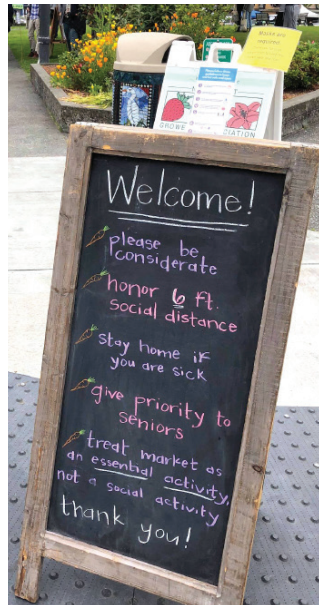 GROWE
CIATION
Welcome!
please be
considerate
honor 6 ft.
social distance
stay home if
you are sick
give priority to
seniors
treat market as
an essential activity,
not a social activity
thank you!